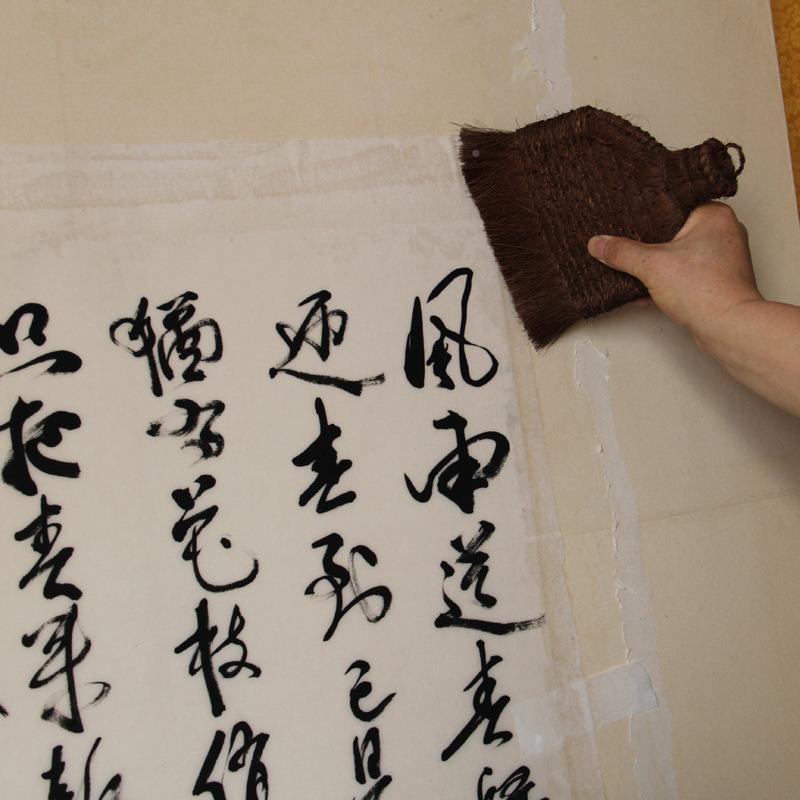 風雨送春歸
迎春到已是
猶有花枝俏
只把春來報